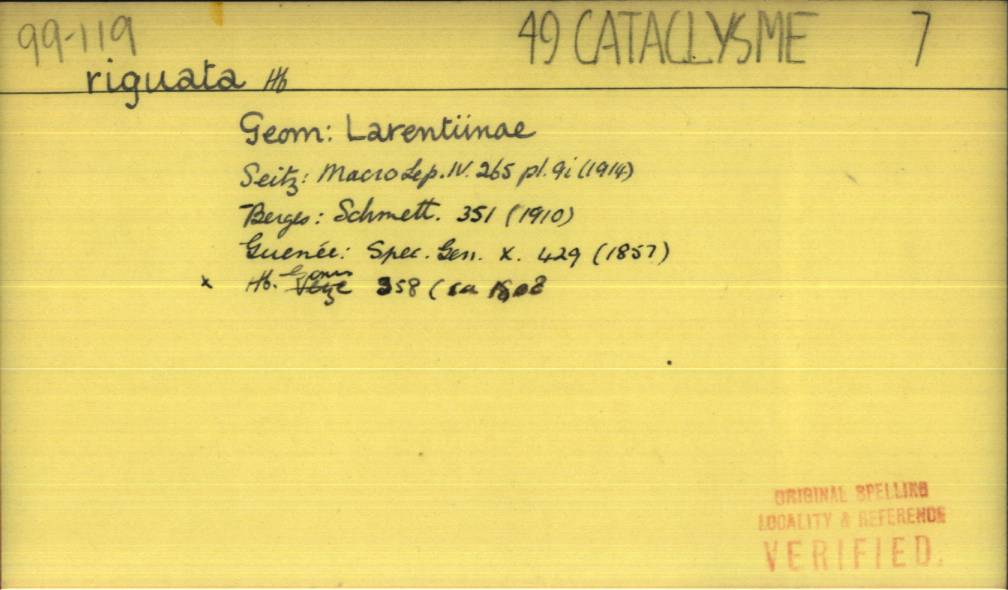 99-119
49 CATACLYSME 7
riguata Hb
Geom: Larentiinae
Seitz: Macro Lep. IV. 265 pl. 9i (1914)
Berges: Schmett. 351 (1910)
Guenée: Spec. Gen. X. 429 (1857)
x Hb. 358 (ca
ORIGINAL SPELLING
LOCALITY & REFERENCE
VERIFIED.